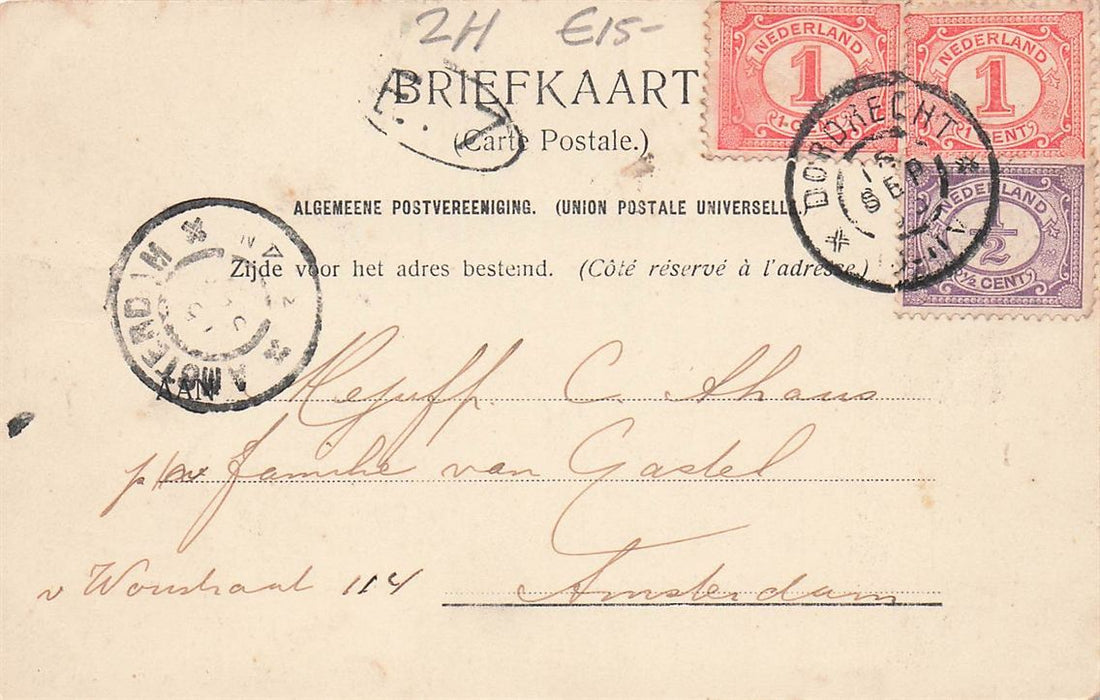 2H €15-
BRIEFKAART
(Carte Postale.)
NEDERLAND
1
1 CENT
NEDERLAND
1
1 CENT
NEDERLAND
1/2
1/2 CENT
DORDRECHT
SEP
ALGEMEENE POSTVEREENIGING. (UNION POSTALE UNIVERSELLE
Zijde voor het adres bestemd. (Côté réservé à l'adresse.)
AMSTERDAM
AAN
Mejuff. C. Ahaus
familie van Gastel
v Woustraat 114 Amsterdam